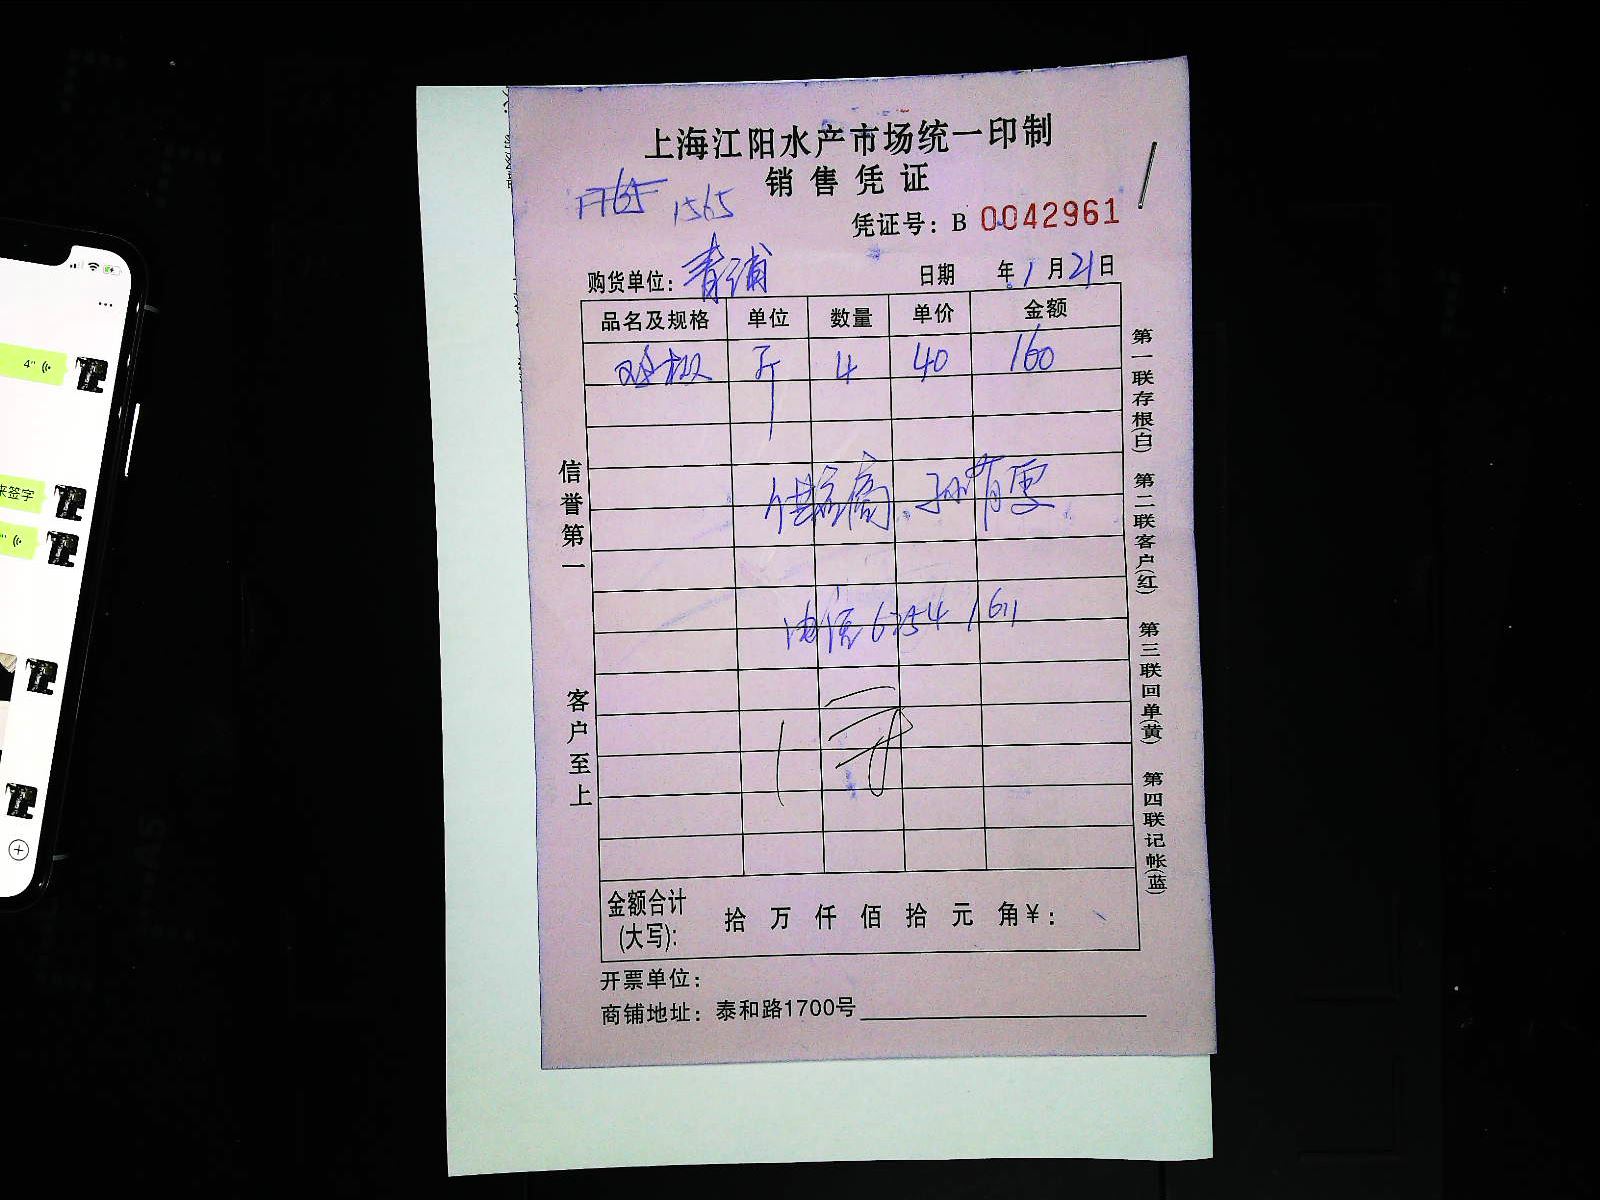 上海江阳水产市场统一印制
销售凭证
1565
凭证号：B 0042961
购货单位：青浦
日期 年 1月21日
品名及规格 单位 数量 单价 金额
斤 4 40 160
供应商、孙育
电话6254 1611
信誉第一
客户至上
第一联存根(白) 第二联客户(红) 第三联回单(黄) 第四联记帐(蓝)
金额合计
(大写): 拾 万 仟 佰 拾 元 角￥:
开票单位：
商铺地址：泰和路1700号
4"
来签字